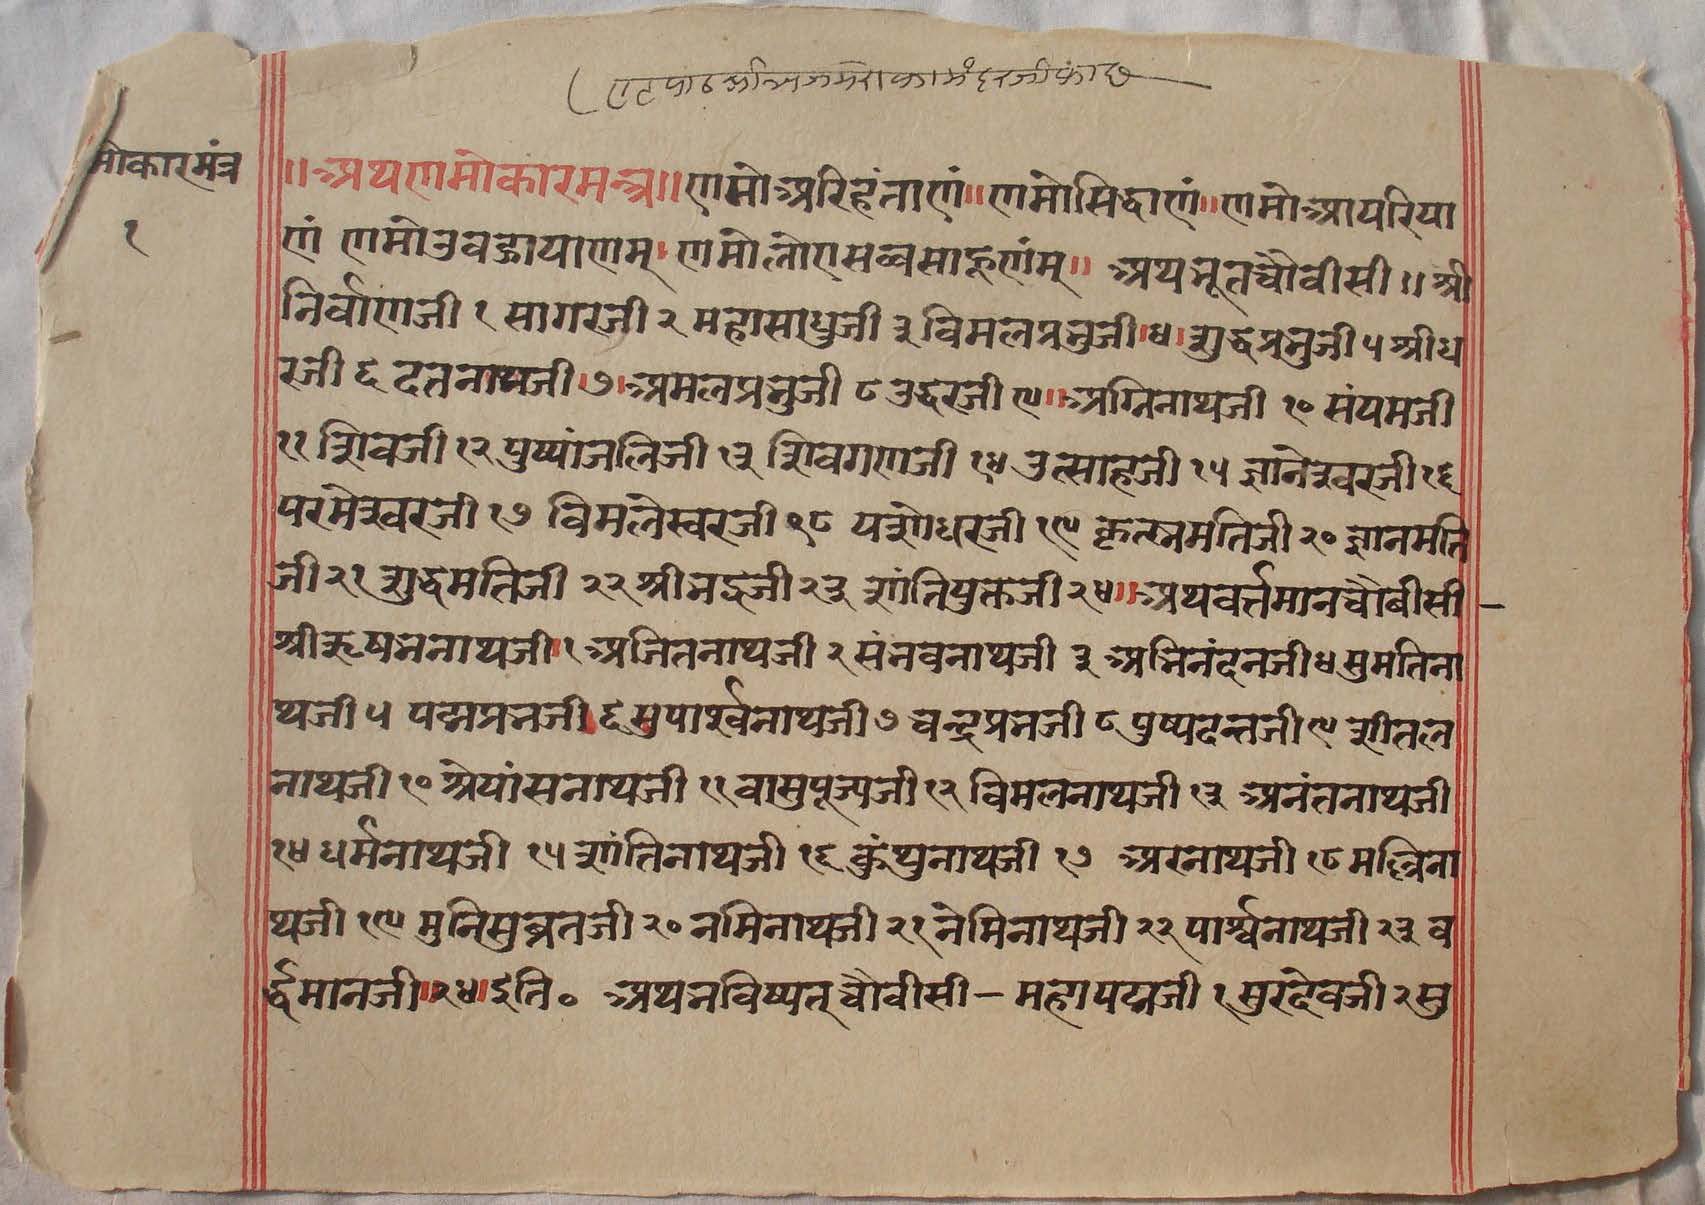 मोकारमंत्र
१
॥अथणमोकारमन्त्र॥णमोअरिहंताणं॥णमोसिद्धाणं॥णमोआयरिया
णं णमोउवज्झायाणम्। णमोलोएसव्वसाहूणंम्॥ अथभूतचौवीसी॥श्री
निर्वाणजी १ सागरजी २ महासाधुजी ३ विमलप्रभुजी।४। शुद्धप्रभुजी ५ श्रीध
रजी ६ दतनाथजी।७।अमलप्रभुजी ८ उद्धरजी ९॥अग्निनाथजी १० संयमजी
११ शिवजी १२ पुष्पांजलिजी १३ शिवगणजी १४ उत्साहजी १५ ज्ञानेश्वरजी १६
परमेश्वरजी १७ विमलेस्वरजी १८ यशोधरजी १९ कृत्स्नमतिजी २० ज्ञानमति
जी २१ शुद्धमतिजी २२ श्रीभद्रजी २३ शांतियुक्तजी २४॥अथवर्त्तमानचौबीसी—
श्रीऋषभनाथजी।१ अजितनाथजी २ संभवनाथजी ३ अभिनंदनजी ४ सुमतिना
थजी ५ पद्मप्रभजी।६ सुपार्श्वनाथजी ७ चन्द्रप्रभजी ८ पुष्पदन्तजी ९ शीतल
नाथजी १० श्रेयांसनाथजी ११ वासुपूज्यजी १२ विमलनाथजी १३ अनंतनाथजी
१४ धर्मनाथजी १५ शांतिनाथजी १६ कुंथुनाथजी १७ अरनाथजी १८ मल्लिना
थजी १९ मुनिसुव्रतजी २० नमिनाथजी २१ नेमिनाथजी २२ पार्श्वनाथजी २३ व
र्द्धमानजी॥२४।इति॰ अथभविष्यत्चौवीसी— महापद्मजी १ सुरदेवजी २ सु